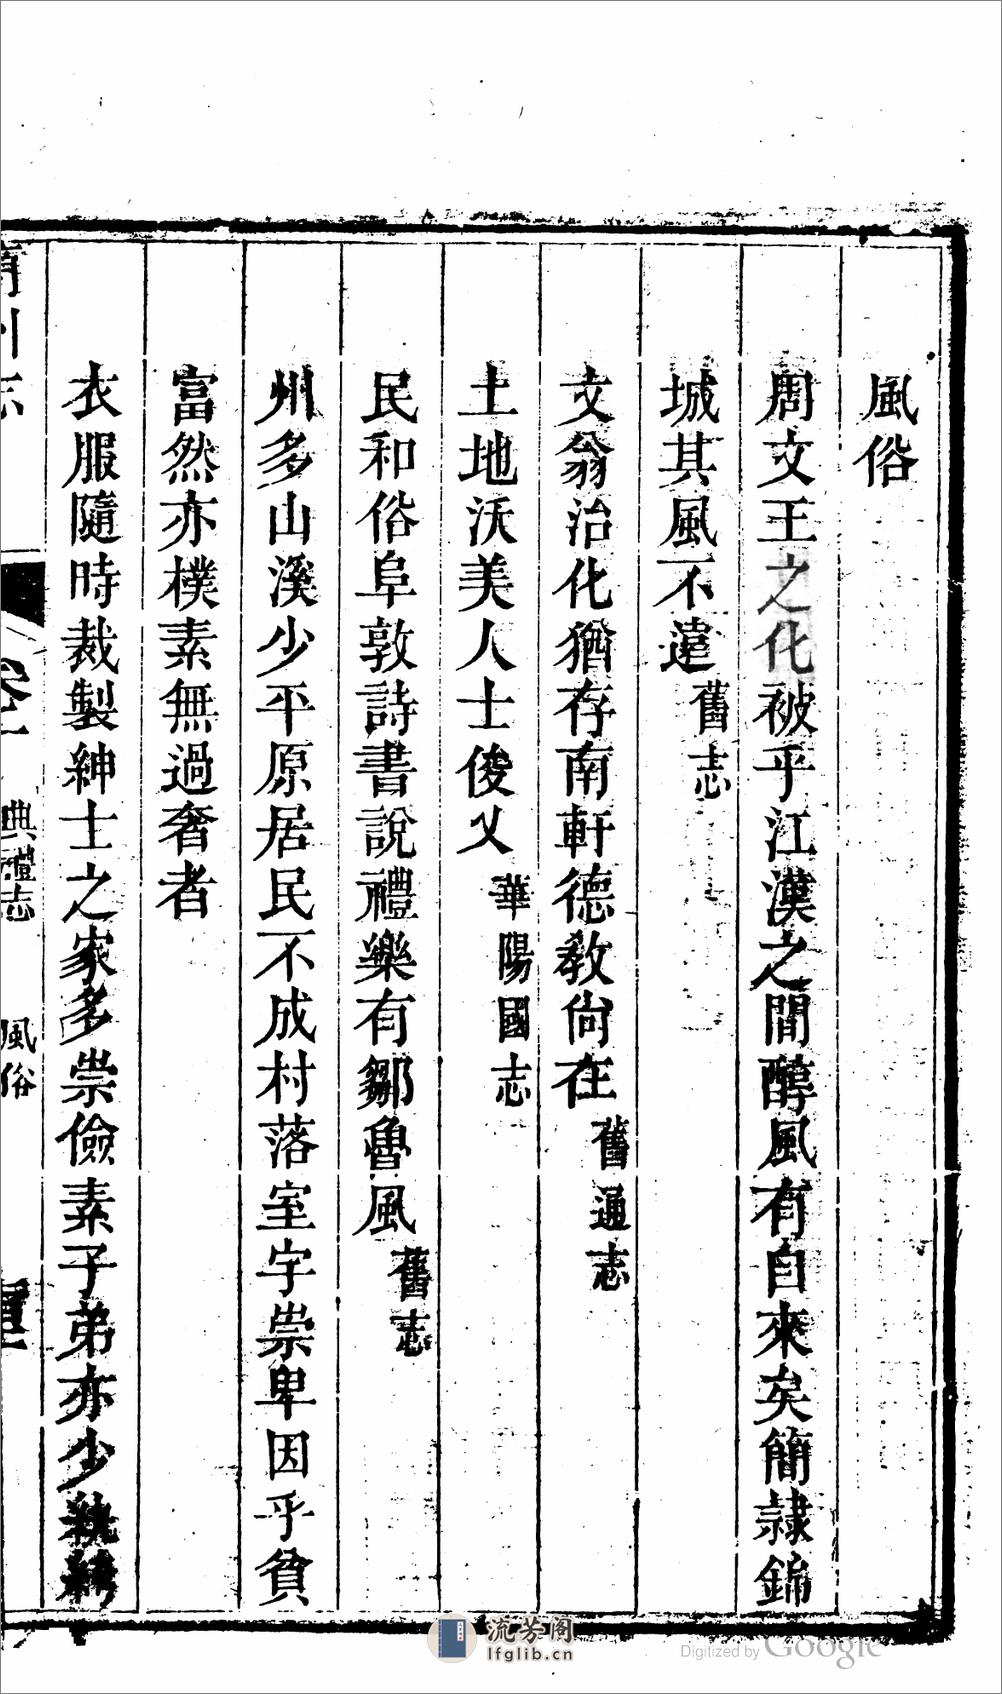 風俗
周文王之化被乎江漢之間醇風有自來矣簡隷錦
城其風不遠舊志
文翁治化猶存南軒德教尙在舊通志
土地沃美人士俊乂華陽國志
民和俗阜敦詩書說禮樂有鄒魯風舊志
州多山溪少平原居民不成村落室宇崇卑因乎貧
富然亦樸素無過奢者
衣服隨時裁製紳士之家多崇儉素子弟亦少
州志 卷一 典禮志 風俗
流芳阁
lfglib.cn
Digitized by Google